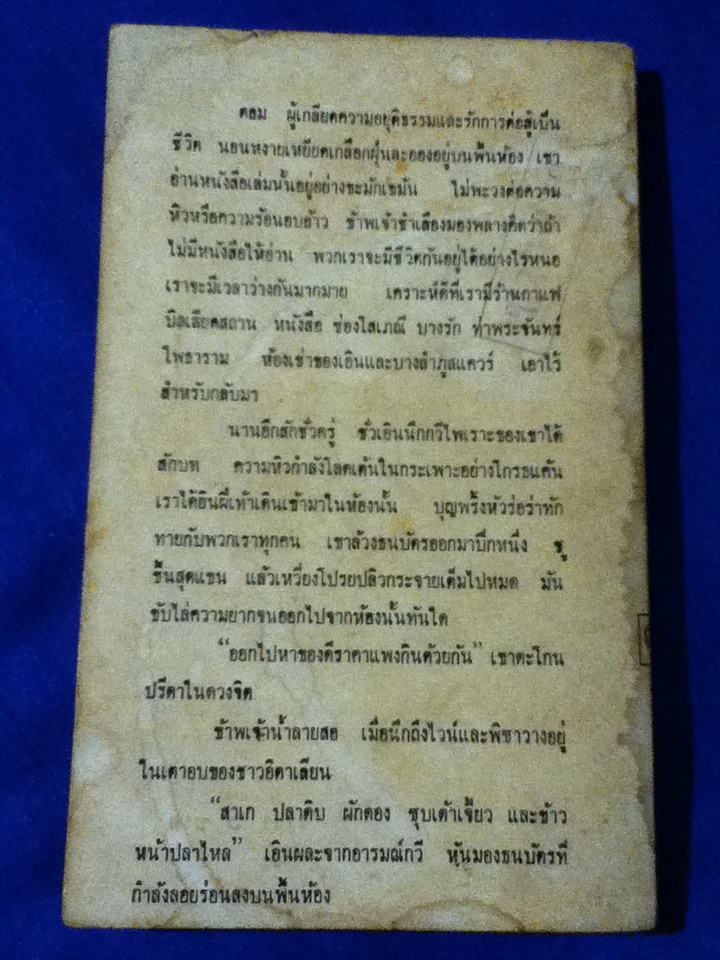 คอม ผู้เกลียดความอยุติธรรมและรักการต่อสู้เป็น
ชีวิต นอนหงายเหยียดเกลือกฝุ่นละอองอยู่บนพื้นห้อง เขา
อ่านหนังสือเล่มนั้นอยู่อย่างขะมักเขม้น ไม่พะวงต่อความ
หิวหรือความร้อนอบอ้าว ข้าพเจ้าชำเลืองมองพลางคิดว่าถ้า
ไม่มีหนังสือให้อ่าน พวกเราจะมีชีวิตกันอยู่ได้อย่างไรหนอ
เราจะมีเวลาว่างกันมากมาย เคราะห์ดีที่เรามีร้านกาแฟ
บิลเลียดสถาน หนังสือ ซ่องโสเภณี บางรัก ท่าพระจันทร์
โพธาราม ห้องเช่าของเอินและบางลำภูสแควร์ เอาไว้
สำหรับกลับมา
นานอีกสักชั่วครู่ ชั่วเอินนึกกวีไพเราะของเขาได้
สักบท ความหิวกำลังโลดเต้นในกระเพาะอย่างโกรธแค้น
เราได้ยินฝีเท้าเดินเข้ามาในห้องนั้น บุญพริ้งหัวร่อร่าทัก
ทายกับพวกเราทุกคน เขาล้วงธนบัตรออกมาปึกหนึ่ง ชู
ขึ้นสุดแขน แล้วเหวี่ยงโปรยปลิวกระจายเต็มไปหมด มัน
ขับไล่ความยากจนออกไปจากห้องนั้นทันใด
“ออกไปหาของดีราคาแพงกินด้วยกัน” เขาตะโกน
ปรีดาในดวงจิต
ข้าพเจ้าน้ำลายสอ เมื่อนึกถึงไวน์และพิซาวางอยู่
ในเตาอบของชาวอิตาเลียน
“สาเก ปลาดิบ ผักดอง ซุบเต้าเจี้ยว และข้าว
หน้าปลาไหล” เอินผละจากอารมณ์กวี หุ้นมองธนบัตรที่
กำลังลอยร่อนลงบนพื้นห้อง